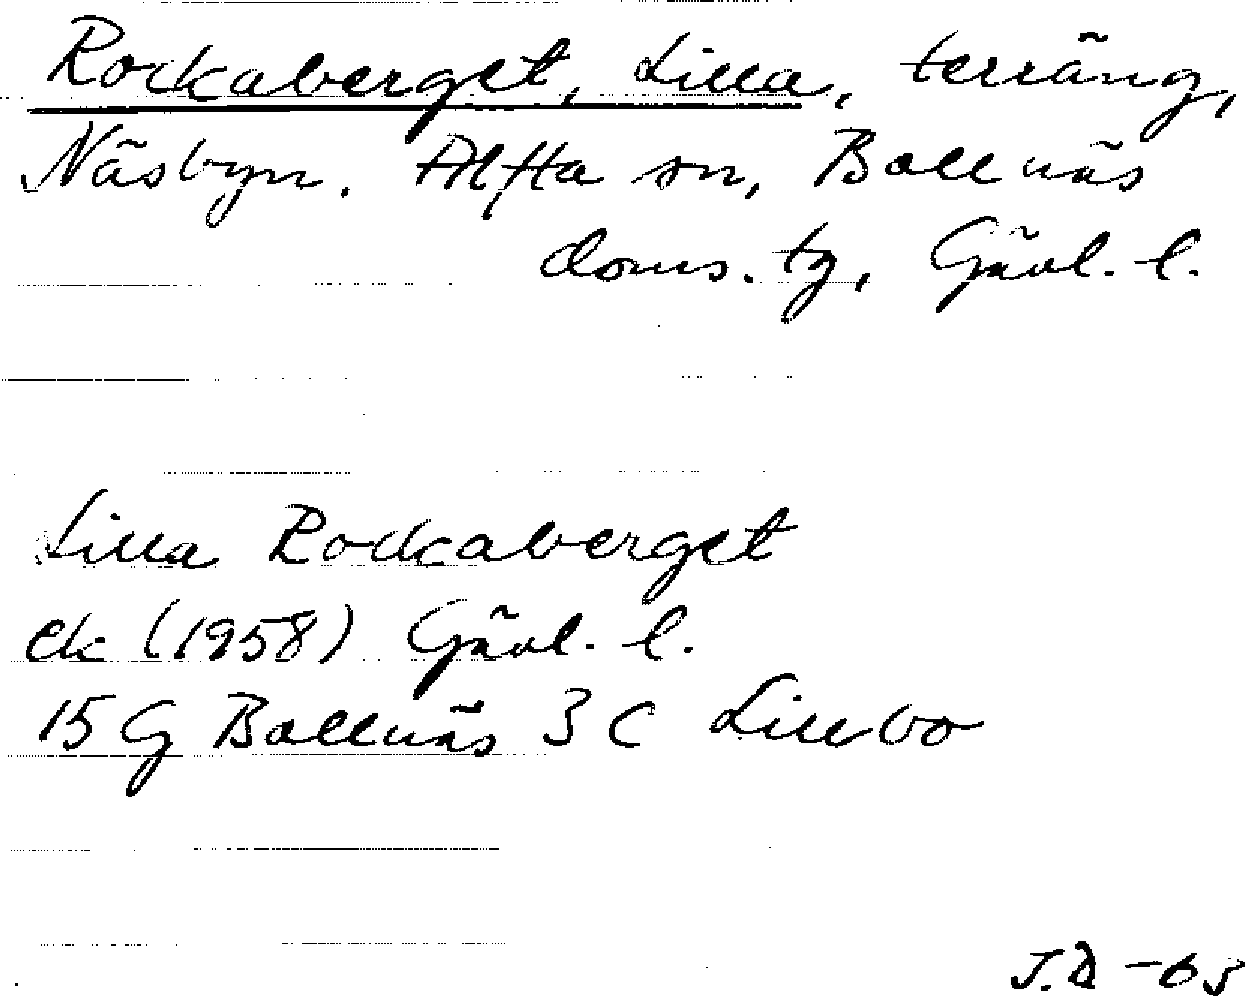 Rockaberget, Lilla, terräng,
Näsbyn. Alfta sn, Bollnäs
doms. tg, Gävl. l.
Lilla Rockaberget
ek (1958) Gävl. l.
15 G Bollnäs 3 C Lillbo
J.D -63